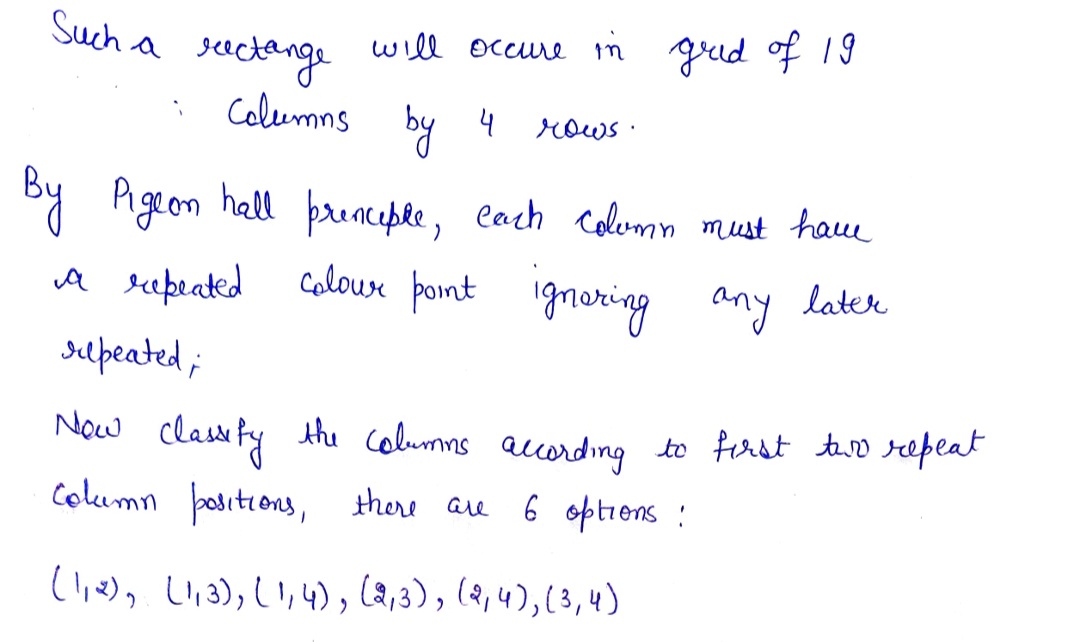 Such a rectange will occure in grid of 19
: Columns by 4 rows.
By Pigeon hall principle, each column must have
a repeated colour point ignoring any later
repeated;
Now classify the columns according to first two repeat
column positions, there are 6 options :
(1,2), (1,3), (1,4), (2,3), (2,4), (3,4)